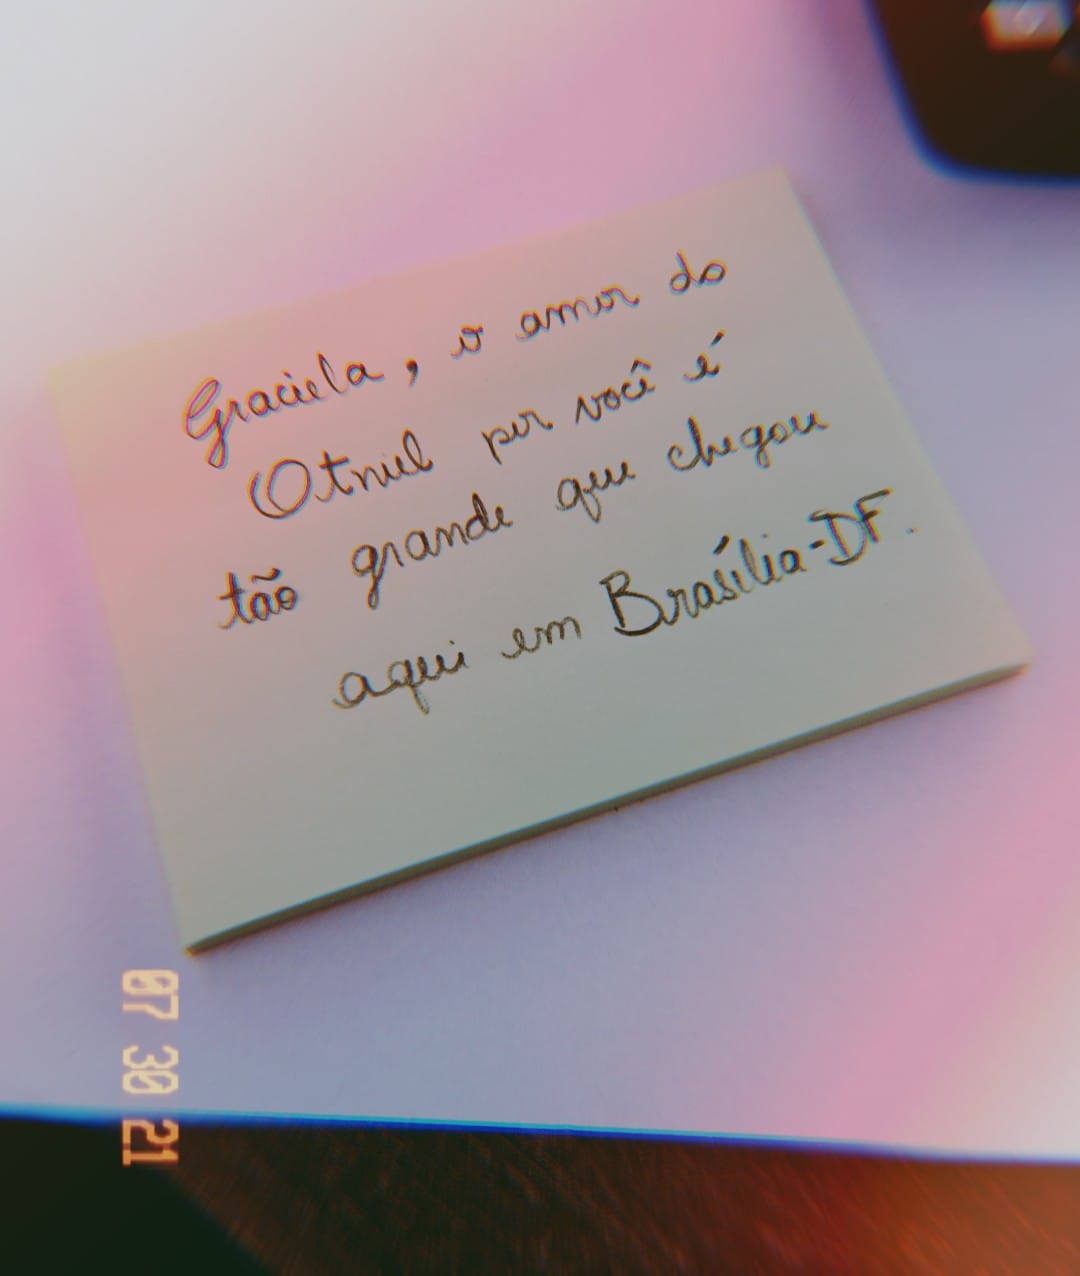 Graciela, o amor do
Otniel por você é
tão grande que chegou
aqui em Brasília-DF.
07 30 21